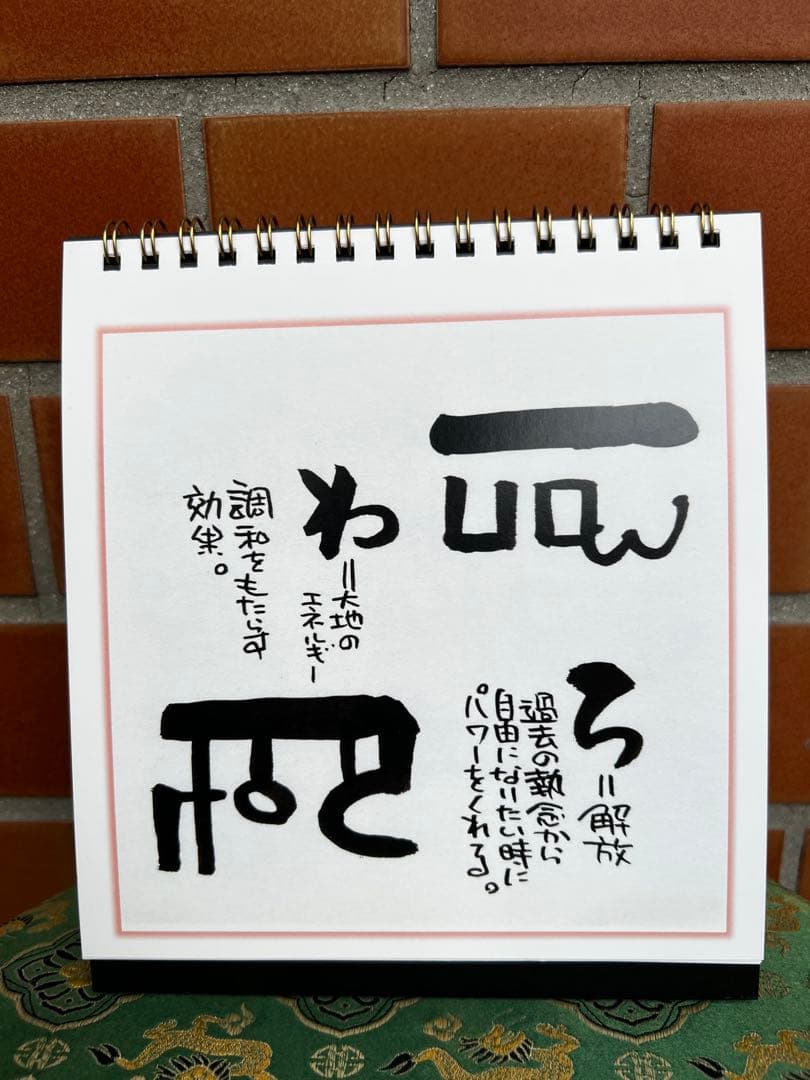 ろ=解放
過去の執念から
自由になりたい時に
パワーをくれる。
わ=大地の
エネルギー
調和をもたらす
効果。